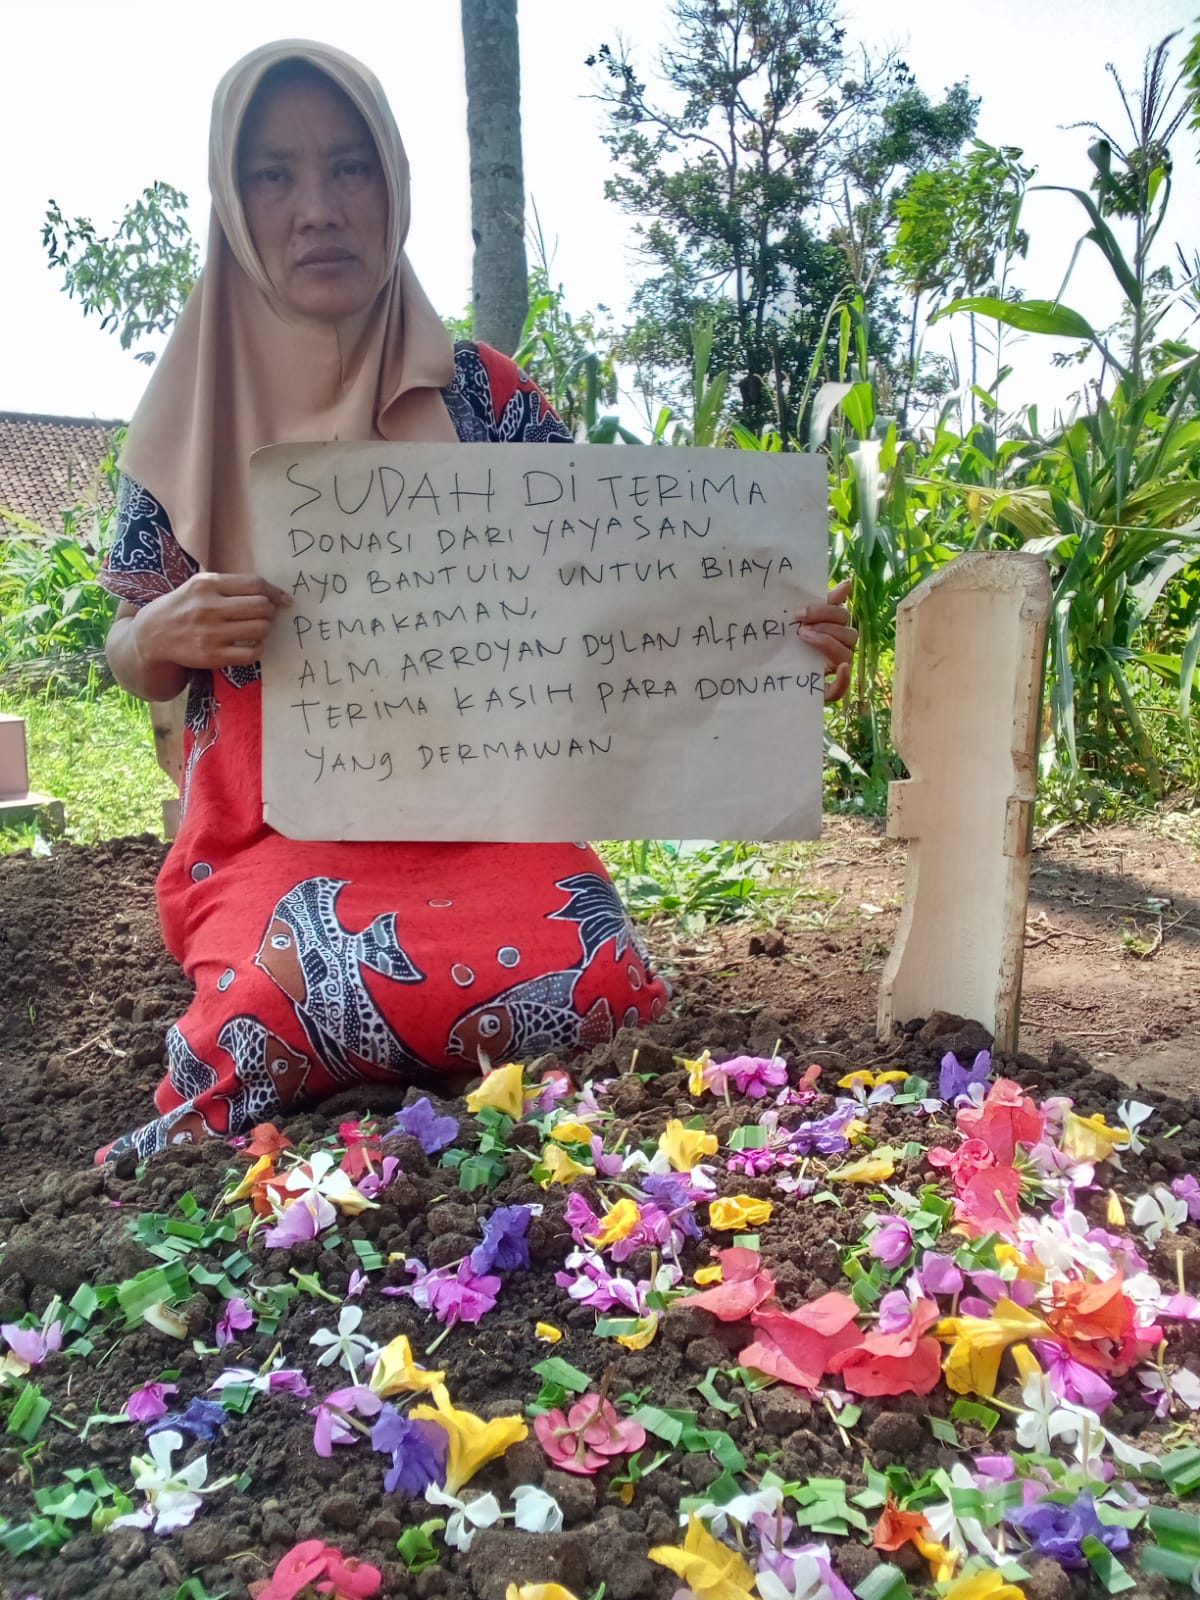 SUDAH Di TERiMA
DONASi DARi YAYASAN
AYO BANTUiN UNTUK BiAYA
PEMAKAMAN,
ALM. ARROYAN DyLAN ALFARiT
TERiMA KASiH PARA DONATUR
YANg DERMAWAN